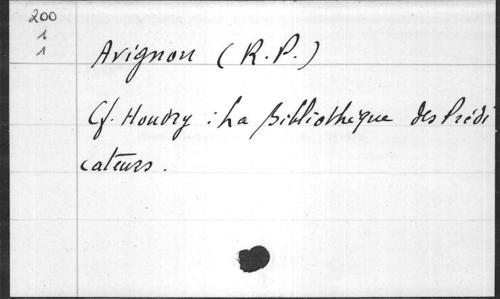 200
1
1
Avignon (R.P.)
Cf. Houdry : La Bibliothèque des Prédi
cateurs.